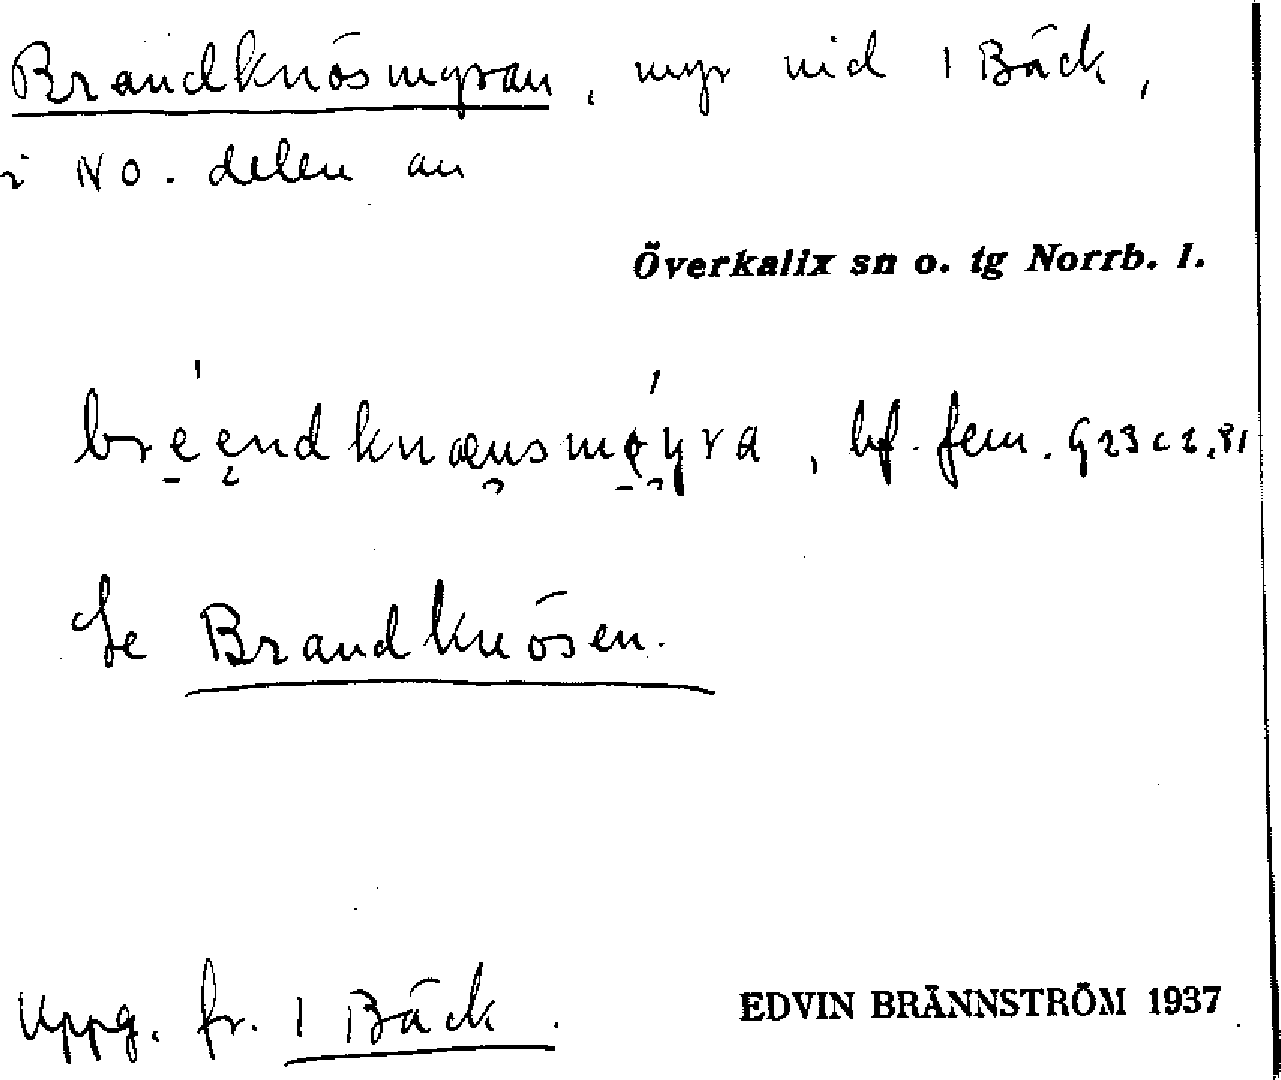 Brandknösmyran, myr vid 1 Bäck,
i NO. delen av
Överkalix sn o. tg Norrb. l.
bréendknænsmøyra, bf. fem. G 23 c 2, 81
Se Brandknösen.
Uppg. fr. 1 Bäck.
EDVIN BRÄNNSTRÖM 1937